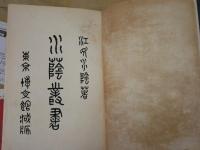 江見水蔭著
水蔭叢書
東京 博文館蔵版